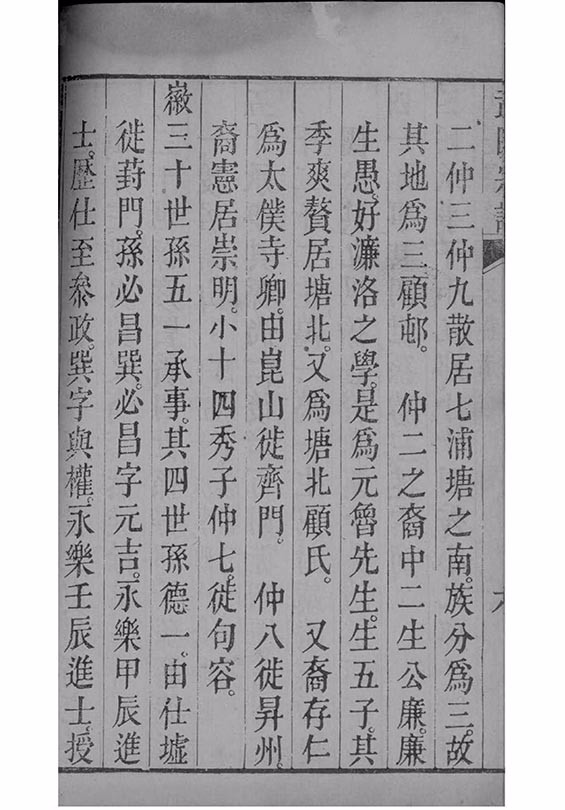 二仲三仲九散居七浦塘之南。族分為三。故
其地為三顧邨。　仲二之裔中二生公廉。廉
生愚。好濂洛之學。是為元魯先生。生五子。其
季爽贅居塘北。又為塘北顧氏。　又裔存仁
為太僕寺卿。由崑山徙齊門。　仲八徙昇州。
裔憲居崇明。小十四秀子仲七。徙句容。
徽三十世孫五一承事。其四世孫德一。由仕墟
徙葑門。孫必昌巽。必昌字元吉。永樂甲辰進
士。歷仕至參政。巽字與權。永樂壬辰進士。授